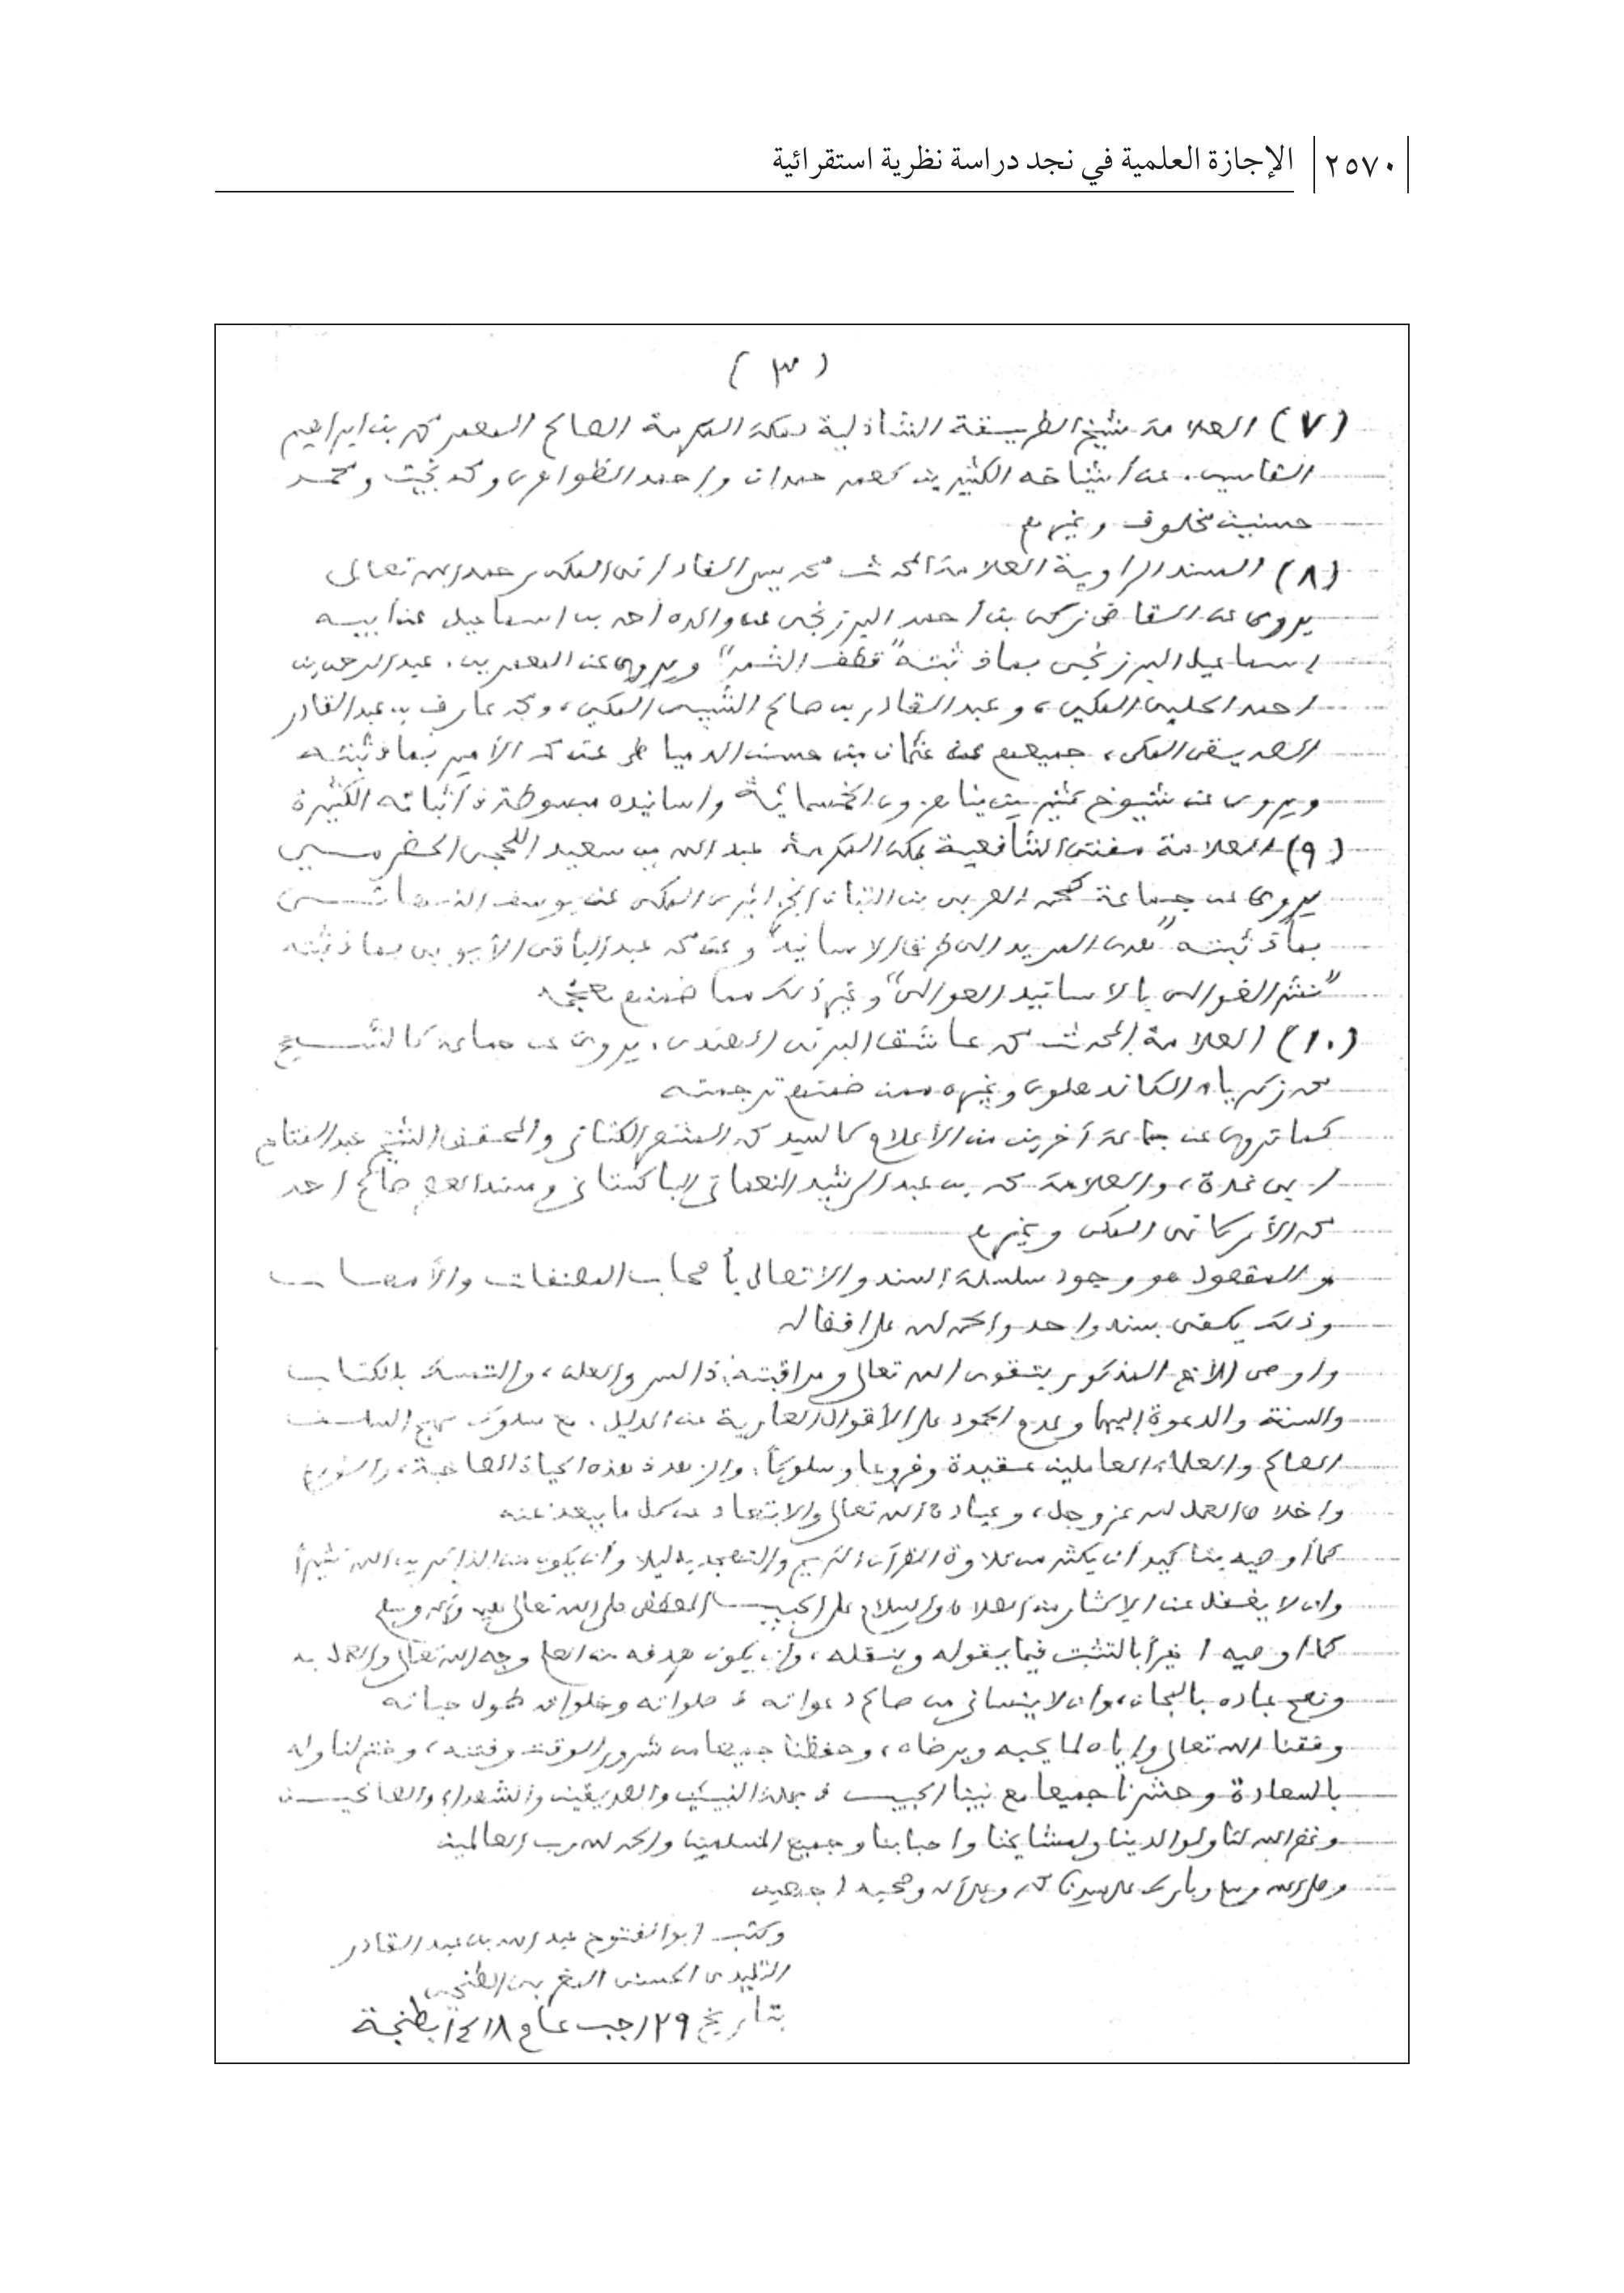 ٢٥٧٠ الإجازة العلمية في نجد دراسة نظرية استقرائية
( ٣ )
(٧) العلامة شيخ الطريقة الشاذلية بمكة المكرمة الصالح المعمر محمد بن ابراهيم
الفاسي. عن أشياخه الكثيرين كعمر حمدان وأحمد الظواهري ومحمد بخيت ومحمد
حسنين مخلوف وغيرهم
(٨) المسند الراوية العلامة المحدث محمد يس الفاداني المكي رحمه الله تعالى
يروى عن القاضي زكي بن أحمد البرزنجي عن والده أحمد بن اسماعيل عن أبيه
اسماعيل البرزنجي بما في ثبته "قطف الثمر" ويروى عن المعمرين. عبد الرحمن بن
احمد الحلبي المكي، وعبد القادر بن صالح الشيبي المكي، ومحمد عارف بن عبد القادر
الصديقي المكي، جميعهم عن عثمان بن حسن الدمياطي عن محمد الأمير بما في ثبته
ويروى عن شيوخ كثيرين يناهزون الخمسمائة وأسانيده مبسوطة في أثباته الكثيرة
(٩) العلامة مفتي الشافعية بمكة المكرمة عبد الله بن سعيد اللحجي الحضرمي
يروى عن جماعة كمحمد العربي بن التباني الجزائري المكي عن يوسف النبهاني
بما في ثبته "هدى المريد إلى طرق الاسانيد" وعن محمد عبد الباقي الأيوبي بما في ثبته
"نشر الغوالي بالاسانيد العوالي" وغير ذلك مما ضمنه معجمه
(١٠) العلامة المحدث محمد عاشق البرني الهندى. يروى عن جماعة كالشيخ
محمد زكرياء الكاندهلوى وغيره ممن ضمنهم ترجمته
كما نروى عن جماعة آخرين من الأعلام كالسيد محمد المنتصر الكتاني والمحقق الشيخ عبد الفتاح
ابي غدة، والعلامة محمد بن عبد الرشيد النعماني الباكستاني ومسند العصر صالح احمد
محمد الأركاني المكي وغيرهم
والمقصود هو وجود سلسلة السند والاتصال بأصحاب المصنفات والأمهات
وذلك يكفي بسند واحد والحمد لله على افضاله
واوصي الأخ المذكور بتقوى الله تعالى ومراقبته في السر والعلن، والتمسك بالكتاب
والسنة والدعوة إليهما وعدم الجمود على الأقوال العارية عن الدليل. مع سلوك نهج السلف
الصالح والعلماء العاملين عقيدة وفروعا وسلوكاً. والزهد في هذه الحياة الصاخبة، والتورع
واخلاص العمل لله عز وجل، وعبادة الله تعالى والابتعاد عن كل ما يبعد عنه
كما أوصيه بتاكيد أن يكثر من تلاوة القرآن الكريم والتهجد به ليلا وأن يكون من الذاكرين الله كثيراً
وان لا يغفل عن الإكثار من الصلاة والسلام على الحبيب المصطفى صلى الله تعالى عليه وآله وسلم
كما أوصيه اخيراً بالتثبت فيما يقوله وينقله، وأن يكون هدفه من العلم وجه الله تعالى والعمل به
ونصح عباده بالمجان، وان لا ينساني من صالح دعواته في صلواته وخلواته طول حياته
وفقنا الله تعالى وإياه لما يحبه ويرضاه، وحفظنا جميعا من شرور الوقت وفتنه، وختم لنا وله
بالسعادة وحشرنا جميعا مع نبينا الحبيب في جملة النبيئين والصديقين والشهداء والصالحين
وغفر الله لنا ولوالدينا ولمشايخنا واحبابنا وجميع المسلمين والحمد لله رب العالمين
وصلى الله وسلم وبارك على سيدنا محمد وعلى آله وصحبه اجمعين
وكتب ابو الفتوح عبد الله بن عبد القادر
التليدى الحسني المغربي الطنجي
بتاريخ ٢٩ رجب عام ١٤١٨ بطنجة